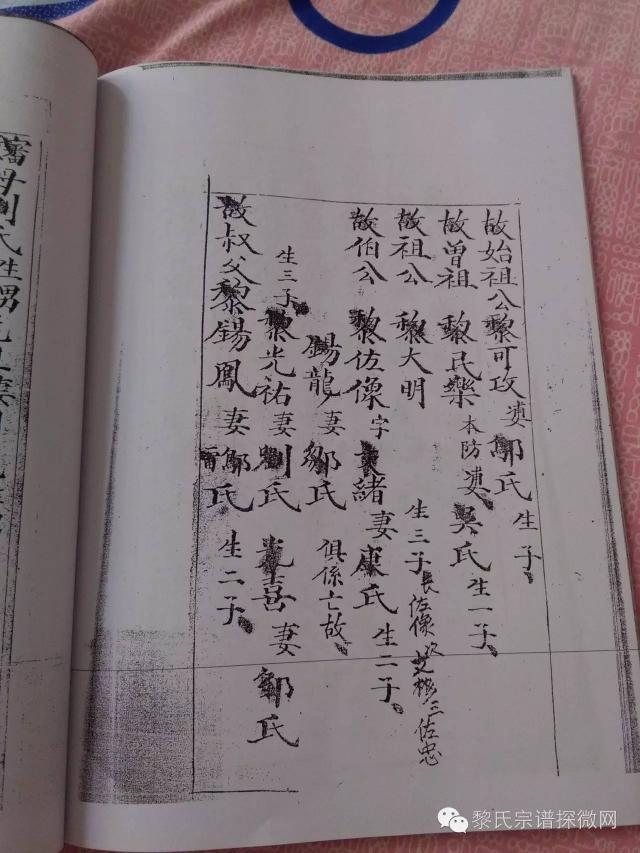 故始祖公黎可政妻鄒氏生子
故曾祖黎民樂本防妻吳氏生一子
故祖公黎大明生三子長佐像次 三佐忠
故伯公黎佐像字 緒妻康氏生二子
錫龍妻鄒氏俱係亡故
生三子黎光祐妻劉氏光喜妻鄒氏
故叔父黎錫鳳妻鄒氏生二子
母劉氏生男
黎氏宗谱探微网